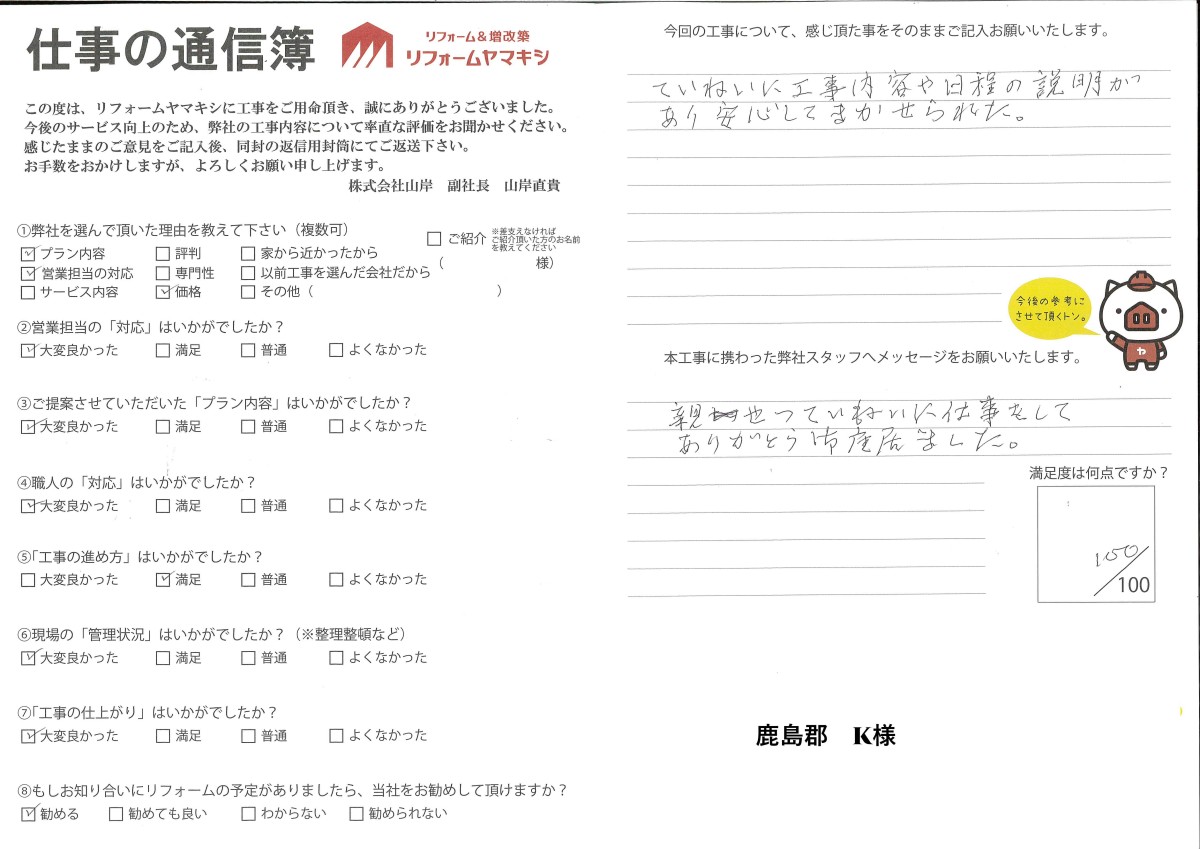 仕事の通信簿
リフォーム&増改築
リフォームヤマキシ
この度は、リフォームヤマキシに工事をご用命頂き、誠にありがとうございました。
今後のサービス向上のため、弊社の工事内容について率直な評価をお聞かせください。
感じたままのご意見をご記入後、同封の返信用封筒にてご返送下さい。
お手数をおかけしますが、よろしくお願い申し上げます。
株式会社山岸 副社長 山岸直貴
①弊社を選んで頂いた理由を教えて下さい（複数可）
☑プラン内容 □評判 □家から近かったから
☑営業担当の対応 □専門性 □以前工事を選んだ会社だから
□サービス内容 ☑価格 □その他（ ）
□ご紹介
※差支えなければ
ご紹介頂いた方のお名前
を教えてください
（ 様）
②営業担当の「対応」はいかがでしたか？
☑大変良かった □満足 □普通 □よくなかった
③ご提案させていただいた「プラン内容」はいかがでしたか？
☑大変良かった □満足 □普通 □よくなかった
④職人の「対応」はいかがでしたか？
☑大変良かった □満足 □普通 □よくなかった
⑤「工事の進め方」はいかがでしたか？
□大変良かった ☑満足 □普通 □よくなかった
⑥現場の「管理状況」はいかがでしたか？（※整理整頓など）
☑大変良かった □満足 □普通 □よくなかった
⑦「工事の仕上がり」はいかがでしたか？
☑大変良かった □満足 □普通 □よくなかった
⑧もしお知り合いにリフォームの予定がありましたら、当社をお勧めして頂けますか？
☑勧める □勧めても良い □わからない □勧められない
今回の工事について、感じ頂た事をそのままご記入お願いいたします。
ていねいに工事内容や日程の説明が
あり安心してまかせられた。
今後の参考に
させて頂くトン。
ヤ
本工事に携わった弊社スタッフへメッセージをお願いいたします。
ていねいに仕事をして
ありがとう
ました。
満足度は何点ですか？
100/100
鹿島郡 K様